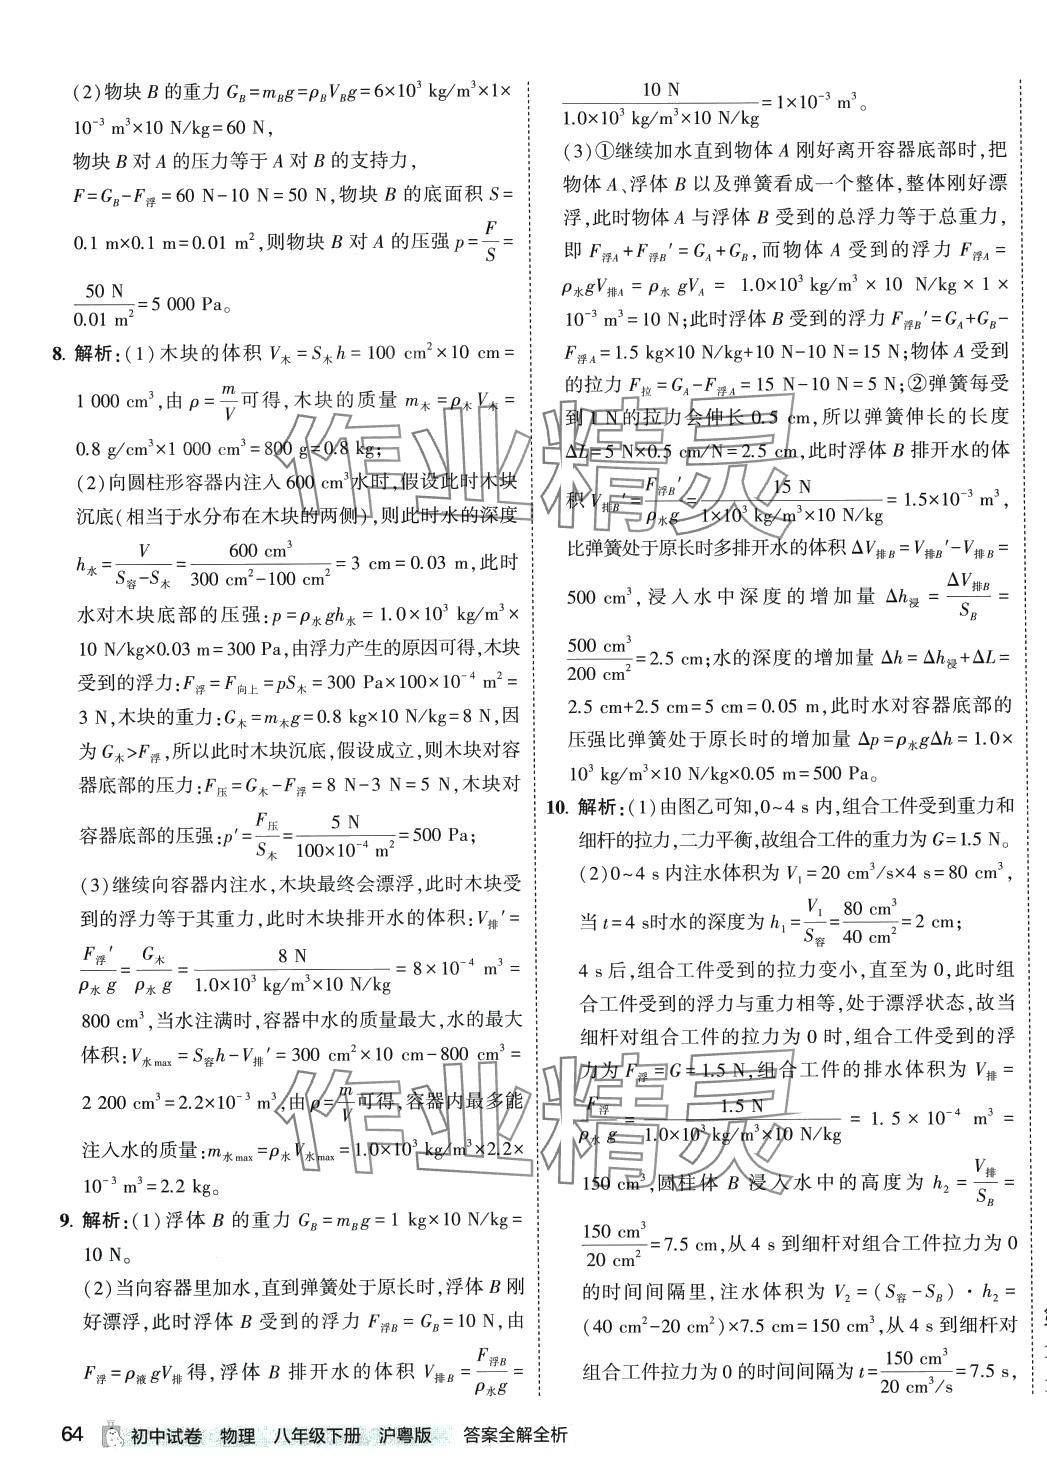 (2)物块 B 的重力 G_B=m_Bg=ρ_BV_Bg=6×10³ kg/m³×1×
10⁻³ m³×10 N/kg=60 N,
物块 B 对 A 的压力等于 A 对 B 的支持力,
F=G_B-F_浮=60 N-10 N=50 N,物块 B 的底面积 S=
0.1 m×0.1 m=0.01 m²,则物块 B 对 A 的压强 p=F/S=
50 N/0.01 m²=5 000 Pa。
8. 解析:(1)木块的体积 V_木=S_木h=100 cm²×10 cm=
1 000 cm³,由 ρ=m/V可得,木块的质量 m_木=ρ_木V_木=
0.8 g/cm³×1 000 cm³=800 g=0.8 kg;
(2)向圆柱形容器内注入 600 cm³水时,假设此时木块
沉底(相当于水分布在木块的两侧),则此时水的深度
h_水=V/(S_容-S_木)=600 cm³/(300 cm²-100 cm²)=3 cm=0.03 m,此时
水对木块底部的压强:p=ρ_水gh_水=1.0×10³ kg/m³×
10 N/kg×0.03 m=300 Pa,由浮力产生的原因可得,木块
受到的浮力:F_浮=F_向上=pS_木=300 Pa×100×10⁻⁴ m²=
3 N,木块的重力:G_木=m_木g=0.8 kg×10 N/kg=8 N,因
为 G_木>F_浮,所以此时木块沉底,假设成立,则木块对容
器底部的压力:F_压=G_木-F_浮=8 N-3 N=5 N,木块对
容器底部的压强:p′=F_压/S_木=5 N/(100×10⁻⁴ m²)=500 Pa;
(3)继续向容器内注水,木块最终会漂浮,此时木块受
到的浮力等于其重力,此时木块排开水的体积:V_排′=
F_浮′/(ρ_水g)=G_木/(ρ_水g)=8 N/(1.0×10³ kg/m³×10 N/kg)=8×10⁻⁴ m³=
800 cm³,当水注满时,容器中水的质量最大,水的最大
体积:V_水max=S_容h-V_排′=300 cm²×10 cm-800 cm³=
2 200 cm³=2.2×10⁻³ m³,由ρ=m/V可得,容器内最多能
注入水的质量:m_水max=ρ_水V_水max=1.0×10³ kg/m³×2.2×
10⁻³ m³=2.2 kg。
9. 解析:(1)浮体 B 的重力 G_B=m_Bg=1 kg×10 N/kg=
10 N。
(2)当向容器里加水,直到弹簧处于原长时,浮体 B 刚
好漂浮,此时浮体 B 受到的浮力 F_浮B=G_B=10 N,由
F_浮=ρ_液gV_排得,浮体 B 排开水的体积 V_排B=F_浮B/(ρ_水g)=
10 N/(1.0×10³ kg/m³×10 N/kg)=1×10⁻³ m³。
(3)①继续加水直到物体 A 刚好离开容器底部时,把
物体 A、浮体 B 以及弹簧看成一个整体,整体刚好漂
浮,此时物体 A 与浮体 B 受到的总浮力等于总重力,
即 F_浮A+F_浮B′=G_A+G_B,而物体 A 受到的浮力 F_浮A=
ρ_水gV_排A=ρ_水gV_A=1.0×10³ kg/m³×10 N/kg×1×
10⁻³ m³=10 N;此时浮体 B 受到的浮力 F_浮B′=G_A+G_B-
F_浮A=1.5 kg×10 N/kg+10 N-10 N=15 N;物体 A 受到
的拉力 F_拉=G_A-F_浮A=15 N-10 N=5 N;②弹簧每受
到 1 N的拉力会伸长 0.5 cm,所以弹簧伸长的长度
ΔL=5 N×0.5 cm/N=2.5 cm,此时浮体 B 排开水的体
积 V_排B′=F_浮B′/(ρ_水g)=15 N/(1×10³ kg/m³×10 N/kg)=1.5×10⁻³ m³,
比弹簧处于原长时多排开水的体积 ΔV_排B=V_排B′-V_排B=
500 cm³,浸入水中深度的增加量 Δh_浸=ΔV_排B/S_B=
500 cm³/200 cm²=2.5 cm;水的深度的增加量 Δh=Δh_浸+ΔL=
2.5 cm+2.5 cm=5 cm=0.05 m,此时水对容器底部的
压强比弹簧处于原长时的增加量 Δp=ρ_水gΔh=1.0×
10³ kg/m³×10 N/kg×0.05 m=500 Pa。
10. 解析:(1)由图乙可知,0~4 s 内,组合工件受到重力和
细杆的拉力,二力平衡,故组合工件的重力为 G=1.5 N。
(2)0~4 s 内注水体积为 V₁=20 cm³/s×4 s=80 cm³,
当 t=4 s时水的深度为 h₁=V₁/S_容=80 cm³/40 cm²=2 cm;
4 s 后,组合工件受到的拉力变小,直至为 0,此时组
合工件受到的浮力与重力相等,处于漂浮状态,故当
细杆对组合工件的拉力为 0 时,组合工件受到的浮
力为 F_浮=G=1.5 N,组合工件的排水体积为 V_排=
F_浮/(ρ_水g)=1.5 N/(1.0×10³ kg/m³×10 N/kg)=1.5×10⁻⁴ m³=
150 cm³,圆柱体 B 浸入水中的高度为 h₂=V_排/S_B=
150 cm³/20 cm²=7.5 cm,从 4 s 到细杆对组合工件拉力为 0
的时间间隔里,注水体积为 V₂=(S_容-S_B)·h₂=
(40 cm²-20 cm²)×7.5 cm=150 cm³,从 4 s 到细杆对
组合工件拉力为 0 的时间间隔为 t=150 cm³/20 cm³/s=7.5 s,
作业精灵
作业精灵
64 初中试卷 物理 八年级下册 沪粤版 答案全解全析